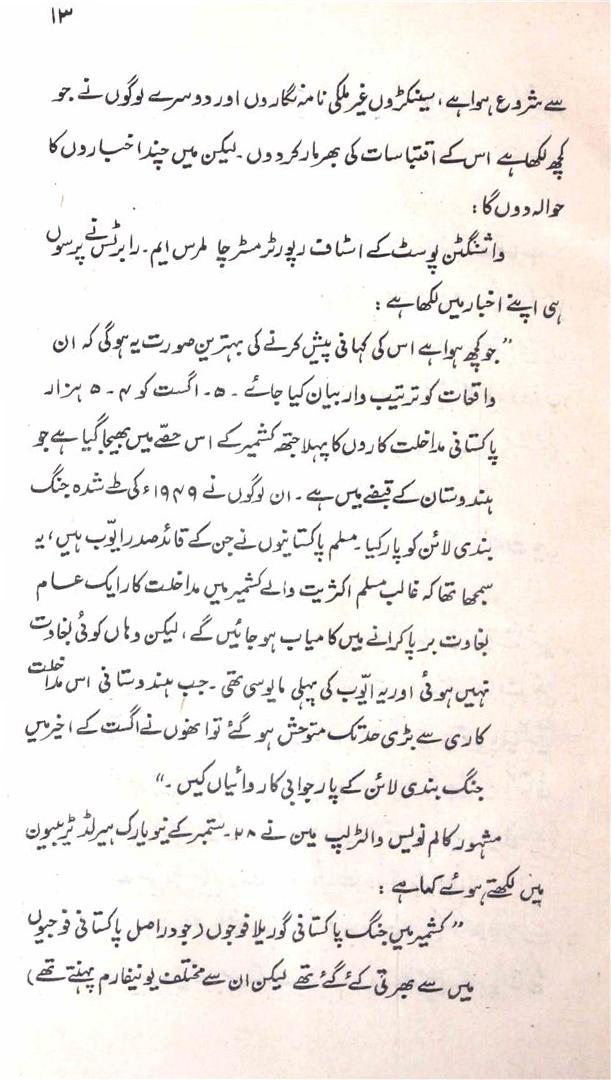 ۱۳
سے شروع ہوا ہے، سینکڑوں غیر ملکی نامہ نگاروں اور دوسرے لوگوں نے جو
کچھ لکھا ہے اس کے اقتباسات کی بھرمار کردوں۔ لیکن میں چند اخباروں کا
حوالہ دوں گا:
واشنگٹن پوسٹ کے اسٹاف رپورٹر مسٹر چالرس ایم۔ رابرٹس نے پرسوں
ہی اپنے اخبار میں لکھا ہے:
”جو کچھ ہوا ہے اس کی کہانی پیش کرنے کی بہترین صورت یہ ہوگی کہ ان
واقعات کو ترتیب وار بیان کیا جائے۔ ۵۔ اگست کو ۴۔ ۵ ہزار
پاکستانی مداخلت کاروں کا پہلا جتھہ کشمیر کے اس حصّے میں بھیجا گیا ہے جو
ہندوستان کے قبضے میں ہے۔ ان لوگوں نے ۱۹۴۹ء کی طے شدہ جنگ
بندی لائن کو پار کیا۔ مسلم پاکستانیوں نے جن کے قائد صدر ایوّب ہیں، یہ
سمجھا تھا کہ غالب مسلم اکثریت والے کشمیر میں مداخلت کار ایک عام
بغاوت برپا کرانے میں کامیاب ہو جائیں گے، لیکن وہاں کوئی بغاوت
نہیں ہوئی اور یہ ایوّب کی پہلی مایوسی تھی۔ جب ہندوستانی اس مداخلت
کاری سے بڑی حد تک متوحش ہو گئے تو انھوں نے اگست کے اخیر میں
جنگ بندی لائن کے پار جوابی کاروائیاں کیں۔“
مشہور کالم نویس والٹر لپ مین نے ۲۸۔ ستمبر کے نیویارک ہیرلڈ ٹریبیون
میں لکھتے ہوئے کہا ہے:
”کشمیر میں جنگ پاکستانی گوریلا فوجوں (جو دراصل پاکستانی فوجیوں
میں سے بھرتی کئے گئے تھے لیکن ان سے مختلف یونیفارم پہنتے تھے)